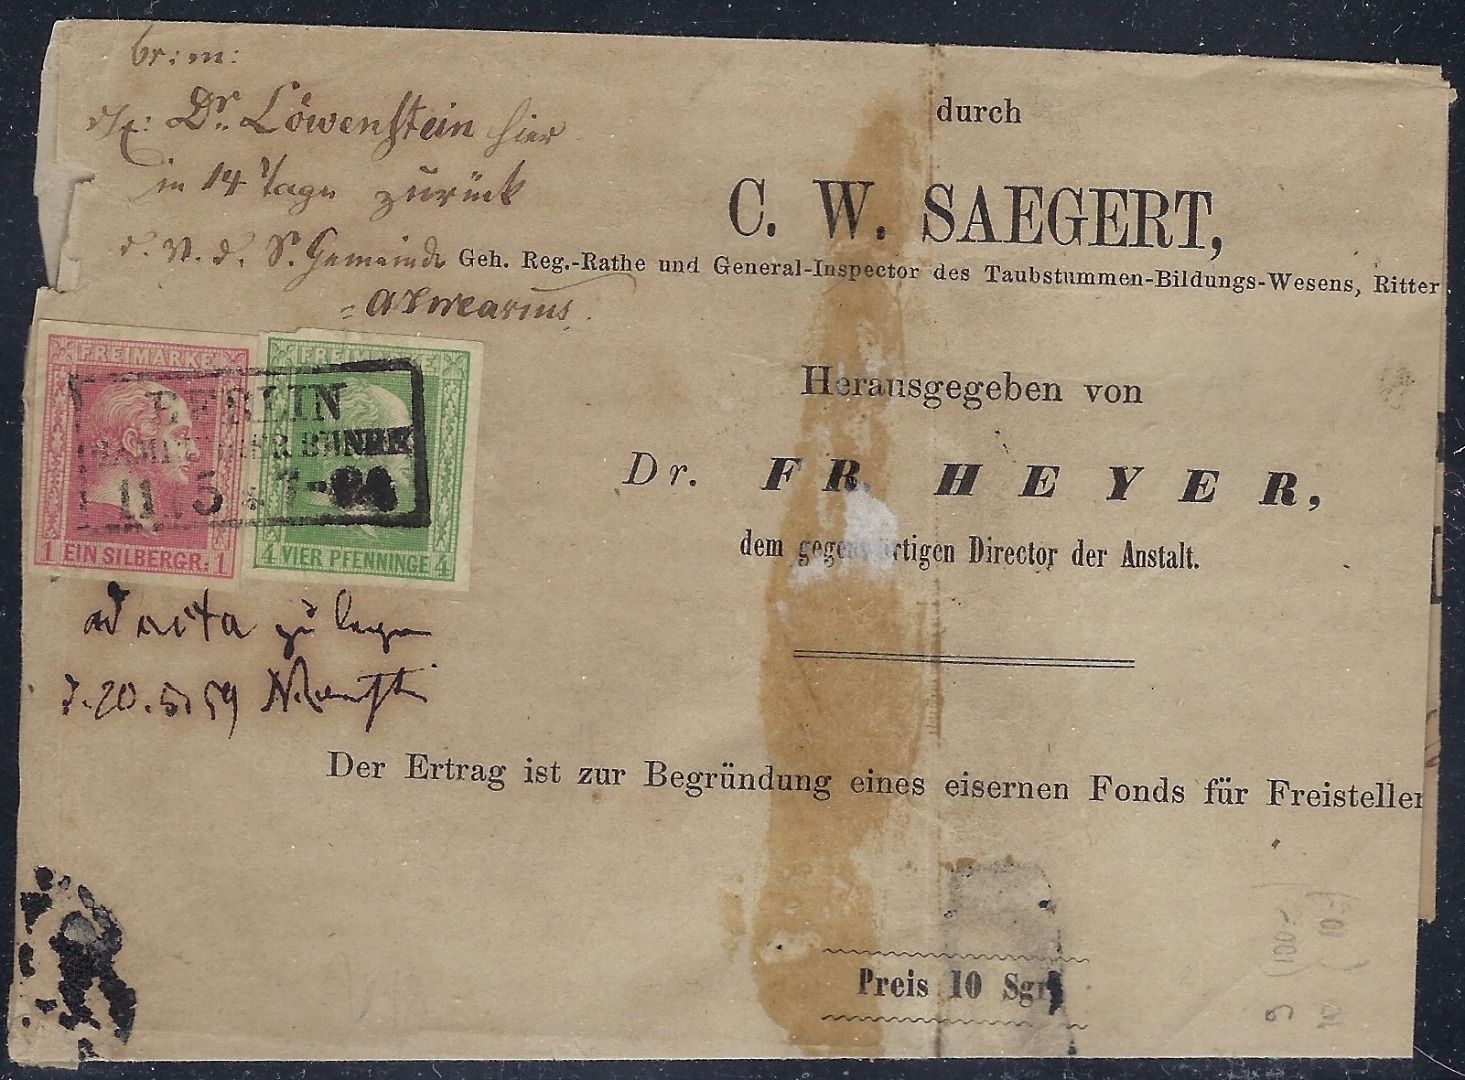 br: m:
Dr. Löwenstein hier
in 14 Tagen zurück
d. V. d. S. Gemeinde
durch
C. W. SAEGERT,
Geh. Reg.-Rathe und General-Inspector des Taubstummen-Bildungs-Wesens, Ritter
Herausgegeben von
Dr. FR. HEYER,
dem gegenwärtigen Director der Anstalt.
FREIMARKE
1 EIN SILBERGR. 1
FREIMARKE
4 VIER PFENNINGE 4
BERLIN
11 5
ad acta zu legen
d. 20. 5. 59
Der Ertrag ist zur Begründung eines eisernen Fonds für Freistellen
Preis 10 Sgr.